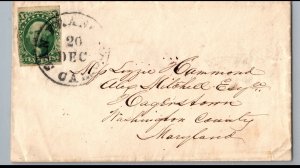 20
DEC
CAL.
Mrs Lizzie Hammond
Alex Mitchell Esq
Hagerstown
Washington County
Maryland